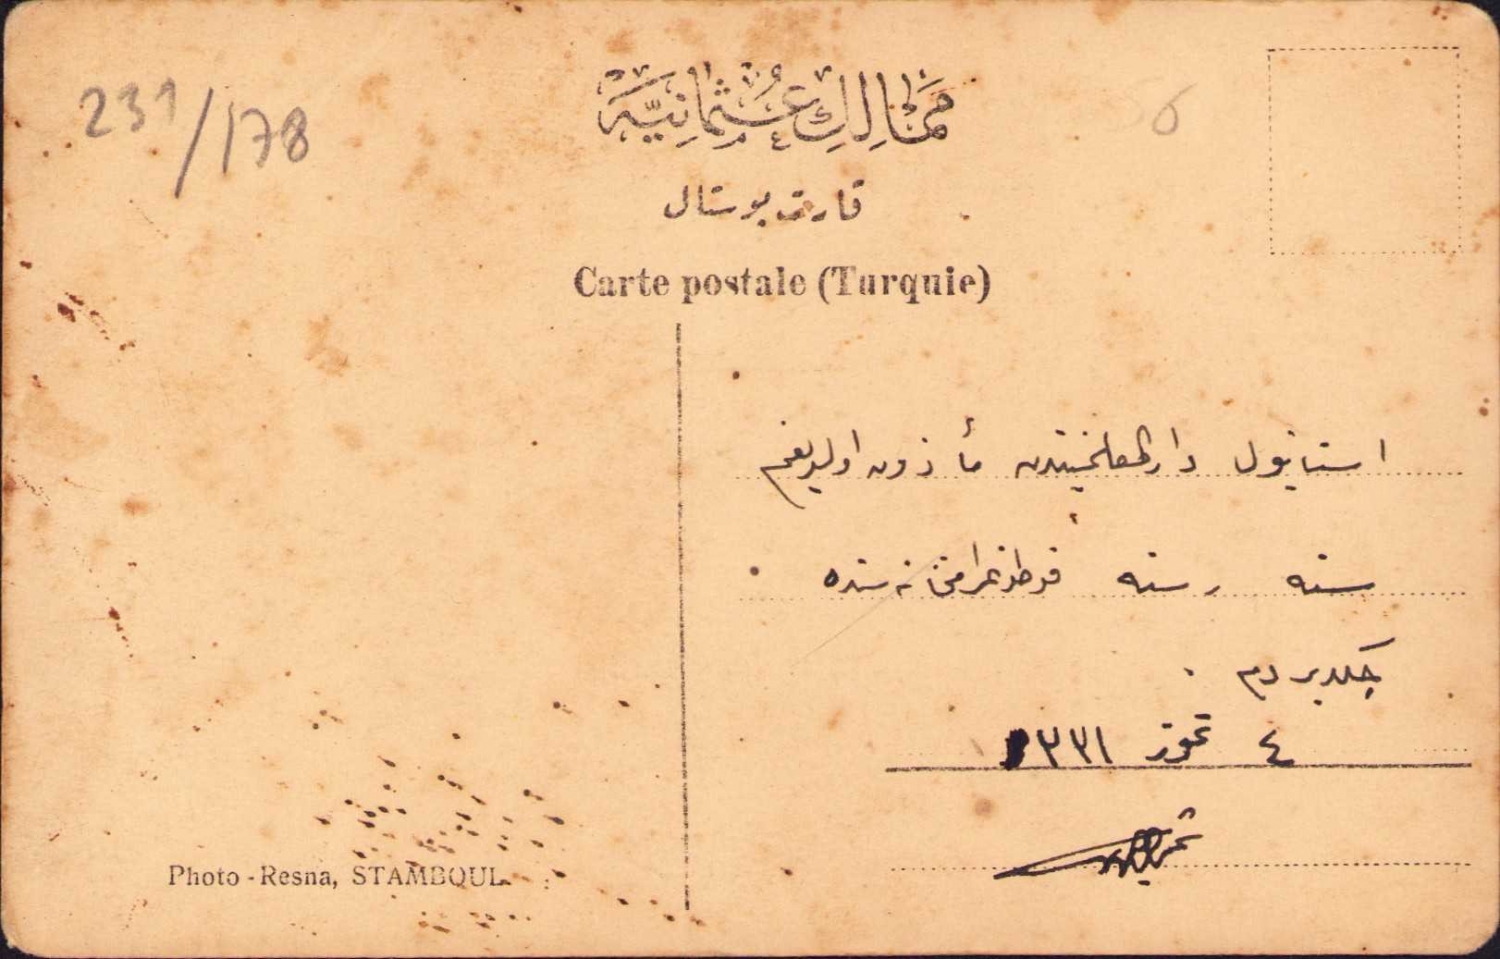 231/178
ممالك عثمانيه
56
قارت بوستال
Carte postale (Turquie)
استانبول دارالمعلمیندن مأذون اولدیغم
سنه رسنه فوطوغرافخانه‌سنده
چكدیردم
٤ تموز ١٣٣١
Photo - Resna, STAMBOUL.